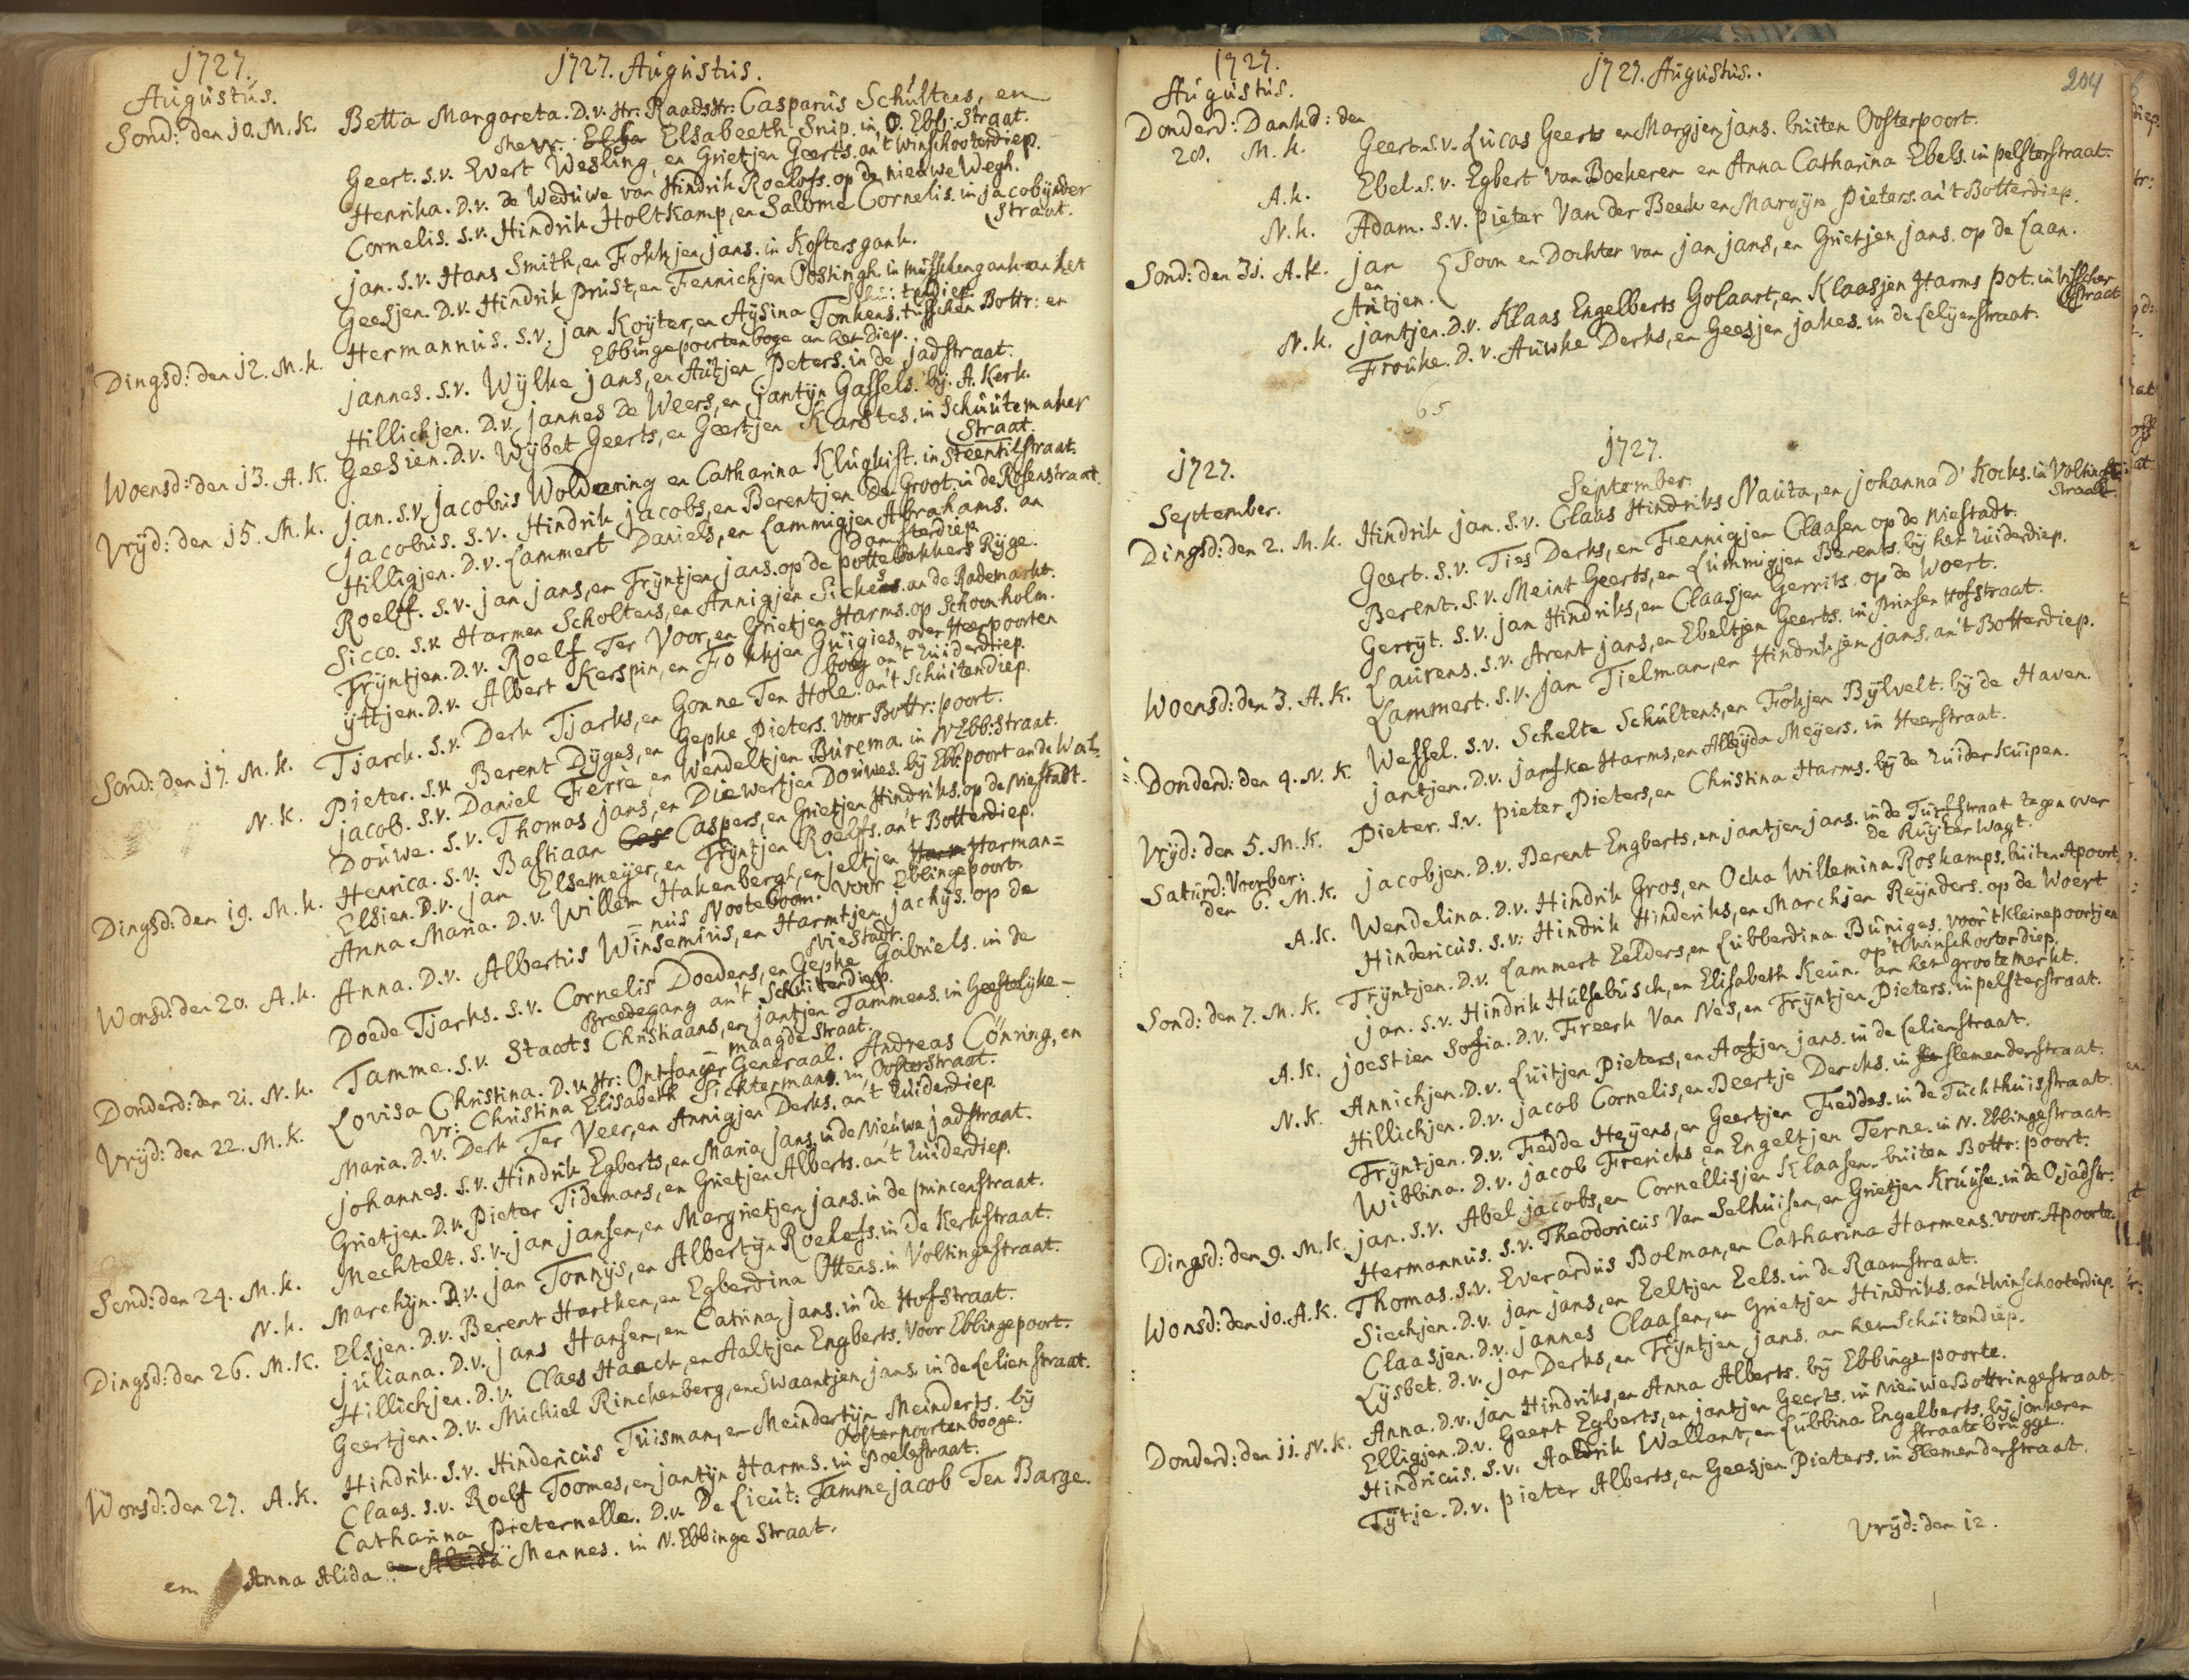 1727.
Augustus.
1727. Augustus.
Sond: den 10. M. K. Betta Margareta. D.v. Hr: Raadshr: Casparus Schultens, en
Mevr: Elsabeeth Snip. in O. Ebb: Straat.
Geert. s.v. Evert Wesling, en Grietjen Geerts. an't Winschooterdiep.
Henrika. D.v. de Weduwe van Hindrik Roelofs. op de nieuwe Wegh.
Cornelis. s.v. Hindrik Holtkamp, en Salome Cornelis. in jacobynder
Straat.
jan. s.v. Hans Smith, en Fokkjen jans. in Kosters gank.
Geesjen. D.v. Hindrik Prust, en Fennichjen Postingh. in Musschengank an het
Schuitendiep.
Dingsd: den 12. M. k. Hermannus. s.v. jan Koyter, en Aysina Tonkens. tusschen Bottr: en
Ebbingepoortenboge an het diep.
jannes. s.v. Wylke jans, en Autjen Peters. in de jadstraat.
Hillichjen. D.v. jannes de Weers, en jantyn Gassels. by A. Kerk.
Woensd: den 13. A. K. Geesien. D.v. Wybet Geerts, en Geertjen Karstes. in Schuutemaker
Straat.
Vryd: den 15. M. k. jan. s.v. Jacobus Woldering en Catharina Klugkist. in Steentilstraat.
jacobus. s.v. Hindrik jacobs, en Berentjen de Groot. in de Rosenstraat.
Hilligjen. D.v. Lammert Daniels, en Lammigjen Abrahams. an
Damsterdiep.
Roelf. s.v. jan jans, en Tryntjen jans. op de pottebakkers Ryge.
Sicco. s.v. Harmen Scholtens, en Annigjen Sickens. an de Rademarkt.
Tryntjen. D.v. Roelf Ter Voor, en Grietjen Harms. op Schoonholm.
yttjen. D.v. Albert Kerspin, en Fokkjen Guigies. over Heerpoorten
boog an't Zuiderdiep.
Sond: den 17. M. k. Tjarck. s.v. Derk Tjarks, en Gonne Ten Hole. an't Schuitendiep.
N. K. Pieter. s.v. Berent Dyges, en Gepke Pieters. voor Bottr: poort.
jacob. s.v. Daniel Ferre, en Wendeltjen Burema. in N Ebb: Straat.
Douwe. s.v. Thomas jans, en Diewertjen Douwes. by Ebb: poort an de Wal.
Dingsd: den 19. M. k. Henrica. s.v. Bastiaan Caspers, en Grietjen Hindriks. op de Niestadt.
Elsien. D.v. jan Elsemeyer, en Tryntjen Roelfs. an't Botterdiep.
Anna Maria. D.v. Willem Hakenbergh, en jeltjen Harman=
=nus Nooteboom. voor Ebbingepoort.
Wonsd: den 20. A. k. Anna. D.v. Albertus Winsemius, en Harmtjen jachys. op de
Niestadt.
Doede Tjarks. s.v. Cornelis Doedens, en Gepke Gabriels. in de
Breedegang an't Schuitendiep.
Donderd: den 21. N. k. Tamme. s.v. Staats Christiaans, en jantjen Tammens. in Geestelyke-
-maagde straat.
Vryd: den 22. M. K. Lovisa Christina. D.v. Hr: Ontfanger Generaal. Andreas Cönring, en
Vr: Christina Elisabeth Sichtermans. in Oosterstraat.
Maria. D.v. Derk Ter Veer, en Annigjen Derks. an't Zuiderdiep.
johannes. s.v. Hindrik Egberts, en Maria jans. in de Nieuwe jadstraat.
Grietjen. D.v. Pieter Tidemans, en Grietjen Alberts. an't Zuiderdiep.
Mechtelt. s.v. jan jansen, en Margrietjen jans. in de princenstraat.
Sond: den 24. M. k. Marchyn. D.v. jan Tonnys, en Albertyn Roelefs. in De Kerkstraat.
N. k. Elsjen. D.v. Berent Harthen, en Egberdina Ottens. in Voltingestraat.
Dingsd: den 26. M. K. juliana. D.v. jans Hansen, en Catrina jans. in de Hofstraat.
Hillichjen. D.v. Claes Haack, en Aaltjen Engberts. Voor Ebbingepoort.
Geertjen. D.v. Michiel Rinckenberg, en Swaantjen jans. in de Lelienstraat.
Wonsd: den 27. A. k. Hindrik. s.v. Hindericus Tuisman, en Meindertyn Meinderts. by
Oosterpoortenbooge.
Claes. s.v. Roelf Toomes, en jantyn Harms. in Poelestraat.
Catharina Pieternelle. D.v. De Lieut: Tamme jacob Ten Barge.
en Anna Alida Mennes. in N. Ebbinge Straat.
1727.
Augustus.
1727. Augustus.
204
Donderd: Dankd: den
28. M. k. Geert. s.v. Lucas Geerts en Margjen jans. buiten Oosterpoort.
A. k. Ebel. s.v. Egbert van Boekeren en Anna Catharina Ebels. in pelsterstraat.
N. k. Adam. s.v. Pieter Van der Beeck en Margyn Pieters. an't Botterdiep.
Sond: den 31. A. k. jan
en
Autjen. { Soon en Dochter van jan jans, en Grietjen jans. op de Laan.
N. k. jantjen. D.v. Klaas Engelberts Golaart, en Klaasjen Harms Pot. in Visscher
Straat
Frouke. D.v. Auwke Derks, en Geesjen jakes. in de Lelyenstraat.
65
1727.
September.
1727.
September.
Dingsd: den 2. M. k. Hindrik jan. s.v. Claas Hindriks Nauta, en johanna D' Kocks. in Voltinge
Straat.
Geert. s.v. Ties Derks, en Fennigjen Claasen op de Niestadt.
Berent. s.v. Meint Geerts, en Lummigjen Berents. by het Zuiderdiep.
Gerryt. s.v. jan Hindriks, en Claasjen Gerrits. op de Woert.
Woensd: den 3. A. K. Laurens. s.v. Arent jans, en Ebeltjen Geerts. in Prinsen Hofstraat.
Lammert. s.v. jan Tielman, en Hindriksjen jans. an't Botterdiep.
Donderd: den 4. N. K. Wessel. s.v. Schelte Schultens, en Fokjen Bylvelt. by de Haven.
jantjen. D.v. jarfke Harms, en Alleyda Meyers. in Heerstraat.
Vryd: den 5. M. K. Pieter. s.v. Pieter Pieters, en Christina Harms. by de Zuiderkuipen.
Saturd: Voorber:
den 6. M. k. jacobjen. D.v. Berent Engberts, en jantjen jans. in de Turfstraat tegen over
de Ruyter Wagt.
A. K. Wendelina. D.v. Hindrik Gros, en Ocka Willemina Roskamps. buiten Apoort.
Hindericus. s.v. Hindrik Hinderiks, en Marchjen Reynders. op de Woert
Sond: den 7. M. K. Tryntjen. D.v. Lammert Eelders, en Lubberdina Buniges. voor't kleinepoortjen
op't Winschooterdiep.
jan. s.v. Hindrik Hulsebusch, en Elisabeth Keun. an het groote merkt.
A. K. joestien Sofia. D.v. Freerk Van Nes, en Tryntjen Pieters. in pelsterstraat.
N. k. Annichjen. D.v. Luitjen Pieters, en Aafjen jans. in de Lelienstraat.
Hillichjen. D.v. jacob Cornelis, en Beertje Dercks. in slemenderstraat.
Tryntjen. D.v. Fedde Heyens, en Geertjen Feddes. in de Tuchthuisstraat.
Wibbina. D.v. jacob Frerichs en Engeltjen Terne. in N. Ebbingestraat.
Dingsd: den 9. M. k. jan. s.v. Abel jacobs, en Cornellisjen Klaasen. buiten Bottr: poort.
Hermannus. s.v. Theodoricus Van Selhuisen, en Grietjen Kruuse. in de O jadstr:
Wonsd: den 10. A. k. Thomas. s.v. Everardus Bolman, en Catharina Harmens. voor Apoorte.
Siechjen. D.v. jan jans, en Eeltjen Eels. in de Raamstraat.
Claasjen. D.v. jannes Claasen, en Grietjen Hindriks. an't Winschooterdiep.
Lysbet. D.v. jan Derks, en Tryntjen jans. an het Schuitendiep.
Donderd: den 11. N. k. Anna. D.v. jan Hindriks, en Anna Alberts. by Ebbinge poorte.
Elligjen. D.v. Geert Egberts, en jantjen Geerts. in Nieuwe Bottringestraat.
Hindricus. s.v. Aaldrik Wallant, en Lubbina Engelberts. by jonkeren
straate brugge.
Tytje. D.v. Pieter Alberts, en Geesjen Pieters. in slemenderstraat.
Vryd: den 12.